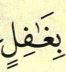 بِغَٰفِلٍ